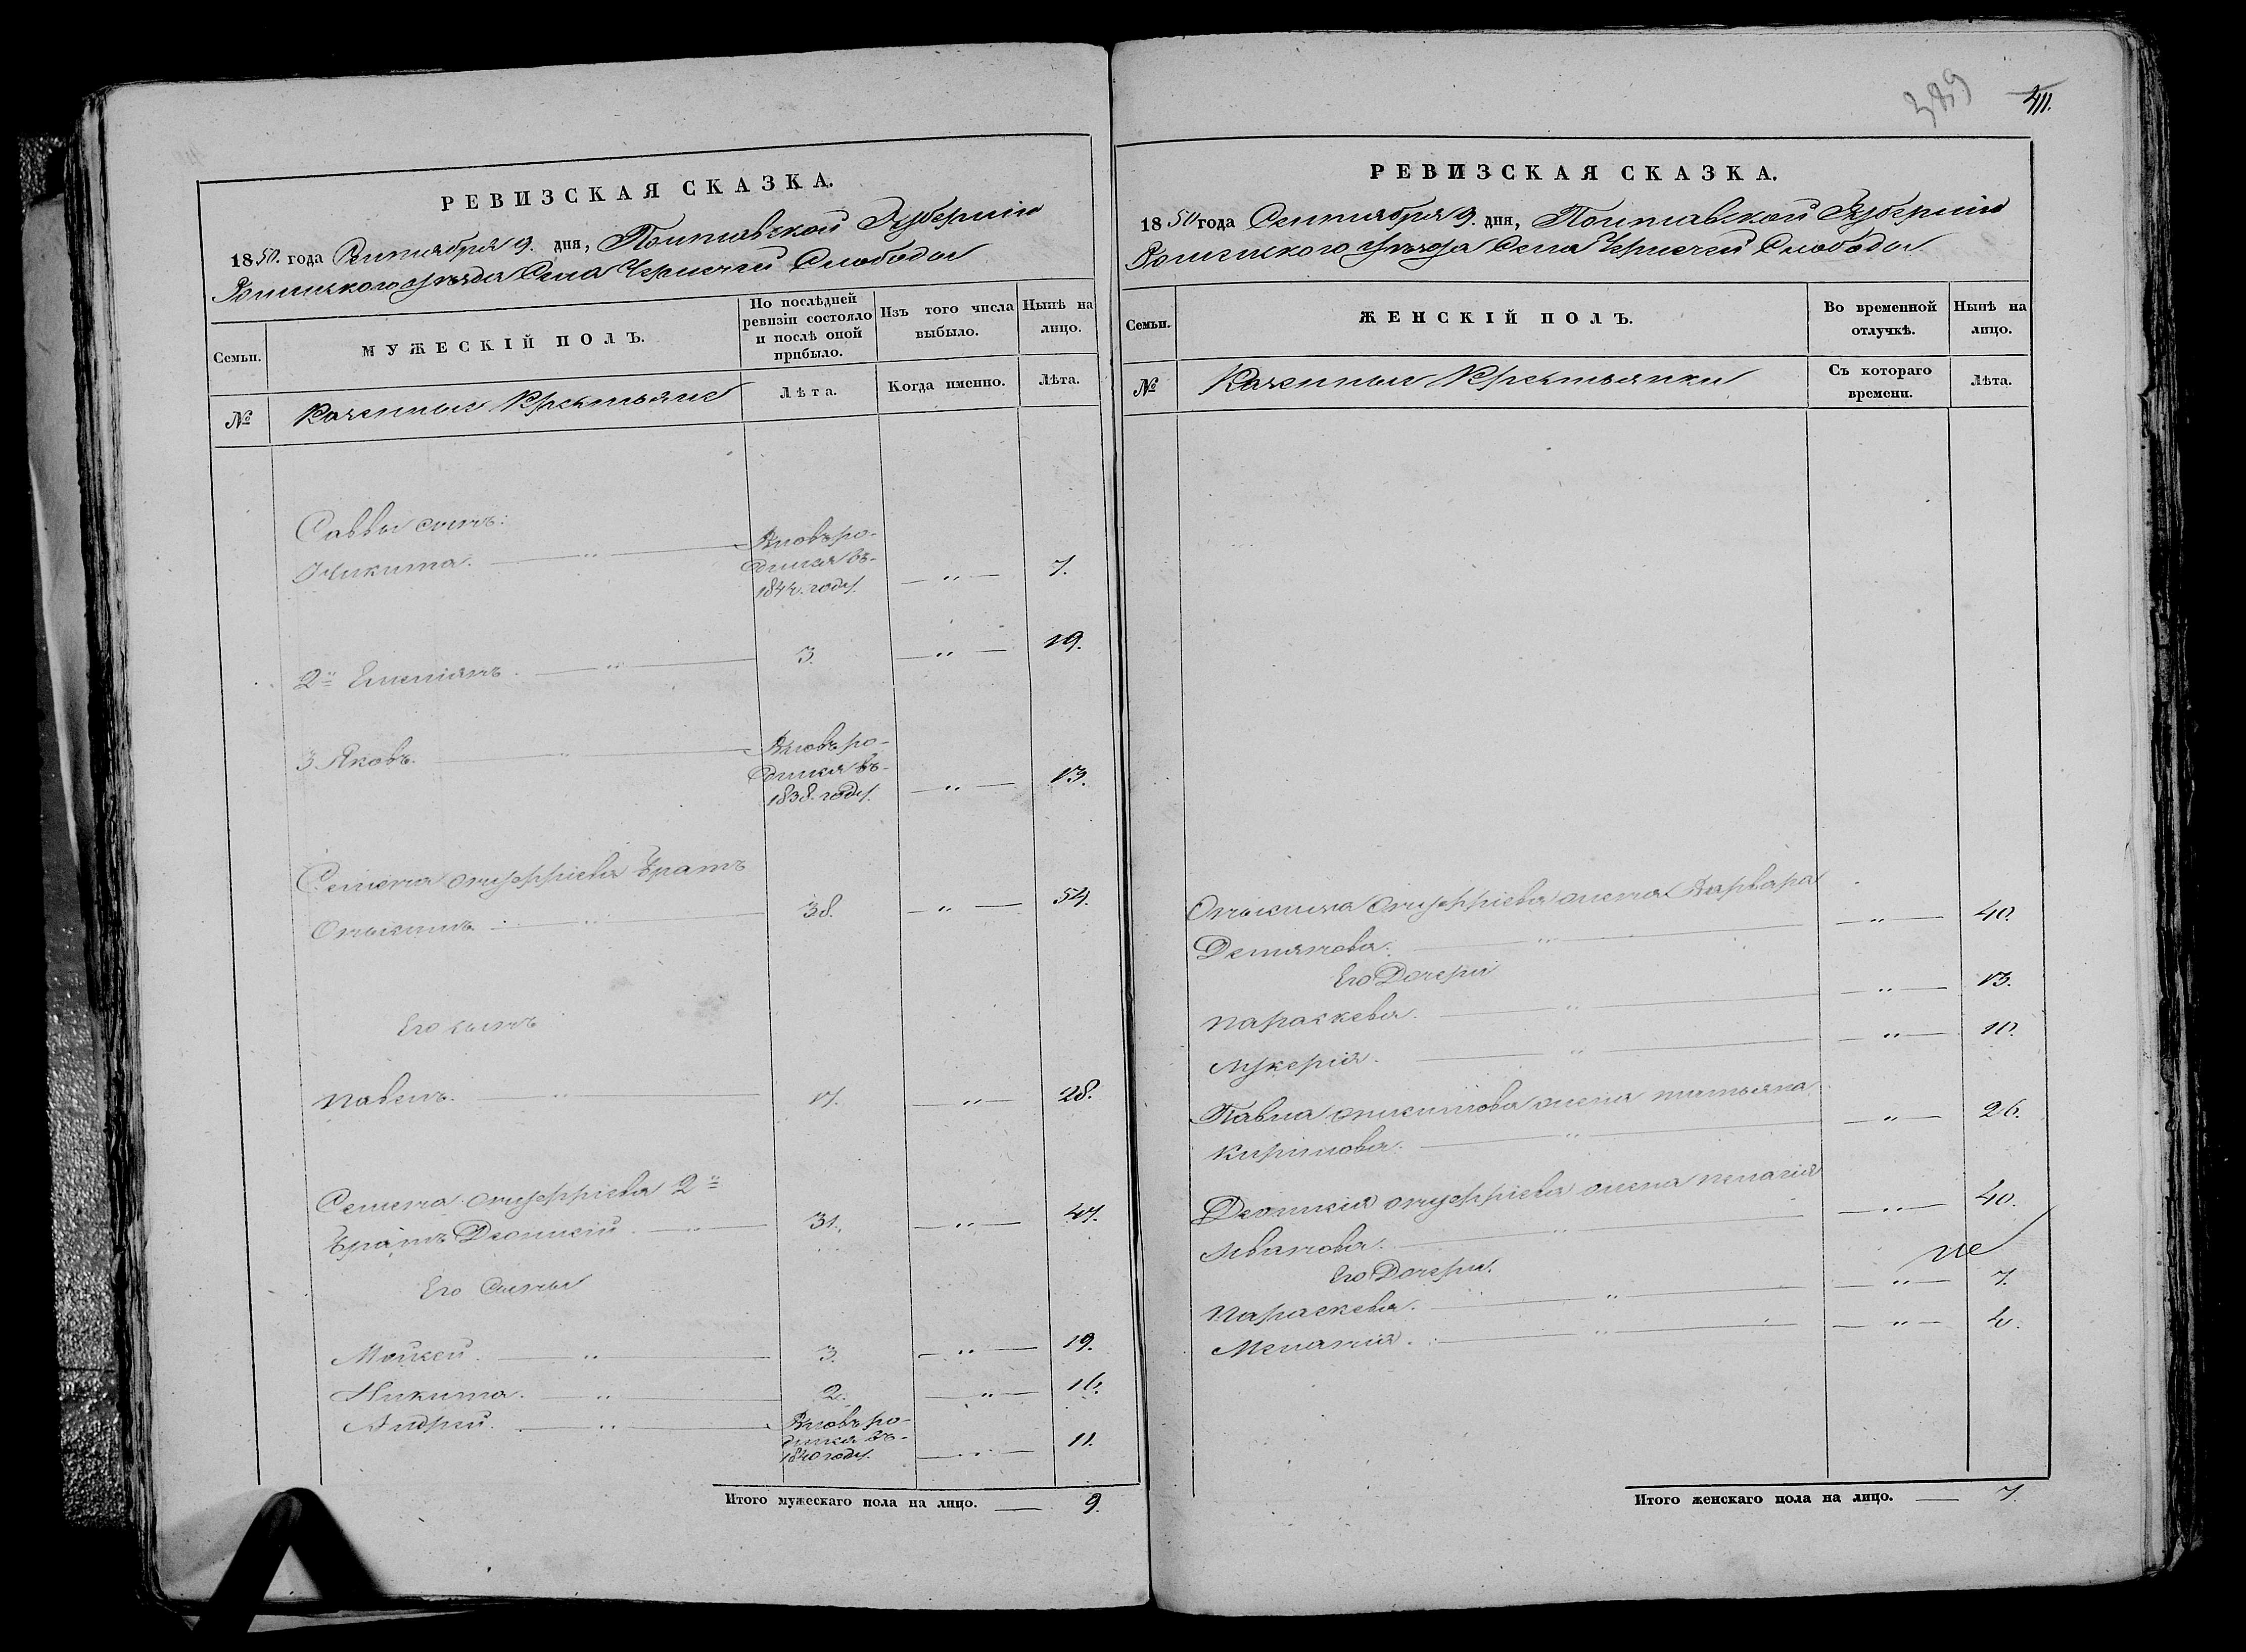 РЕВИЗСКАЯ СКАЗКА.
1850. года Сентября 9. дня, Полтавской Губерніи
Роменского уѣзда Села Чернечей Слободы
Семьи.
МУЖЕСКІЙ ПОЛЪ.
По послѣдней ревизіи состояло и послѣ оной прибыло.
Изъ того числа выбыло.
Нынѣ на лицо.
№
Казенные Крестьяне
Лѣта.
Когда именно.
Лѣта.
Саввы сынъ:
Никита. — " — Вновь ро-
дился въ
1844. году. — " — 7.
2й Емеліянъ. — " — 3. — " — 19.
3 Яковъ. — " — Вновь ро-
дился въ
1838. году. — " — 13.
Семена Онуфріева братъ
Онисимъ — " — 38. — " — 54.
Его сынъ
Павелъ. — " — 12. — " — 28.
Семена Онуфріева 2й
братъ Діонисій. — " — 31. — " — 47.
Его Сыны
Мойсей. — " — 3. — " — 19.
Никита. — " — 2. — " — 16.
Андрей. — " — Вновь ро-
дился въ
1840 году. — " — 11.
Итого мужескаго пола на лицо. — 9.
411.
РЕВИЗСКАЯ СКАЗКА.
1850 года Сентября 9. дня, Полтавской Губерніи
Роменского уѣзда Села Чернечей Слободы
Семьи.
ЖЕНСКІЙ ПОЛЪ.
Во временной отлучкѣ.
Нынѣ на лицо.
№
Казенные Крестьянки
Съ котораго времени.
Лѣта.
Онисима Онуфріева жена Варвара
Демянова. — " — 40.
Его Дочери
Параскева. — " — 13.
Лукерія. — " — 10.
Павла Онисимова жена татьяна
Кирилова. — " — 26.
Діонисія Онуфріева жена пелагія
Иванова. — " — 40.
Его Дочери.
Параскева. — " — 7.
Меланія. — " — 4.
Итого женскаго пола на лицо. — 7.